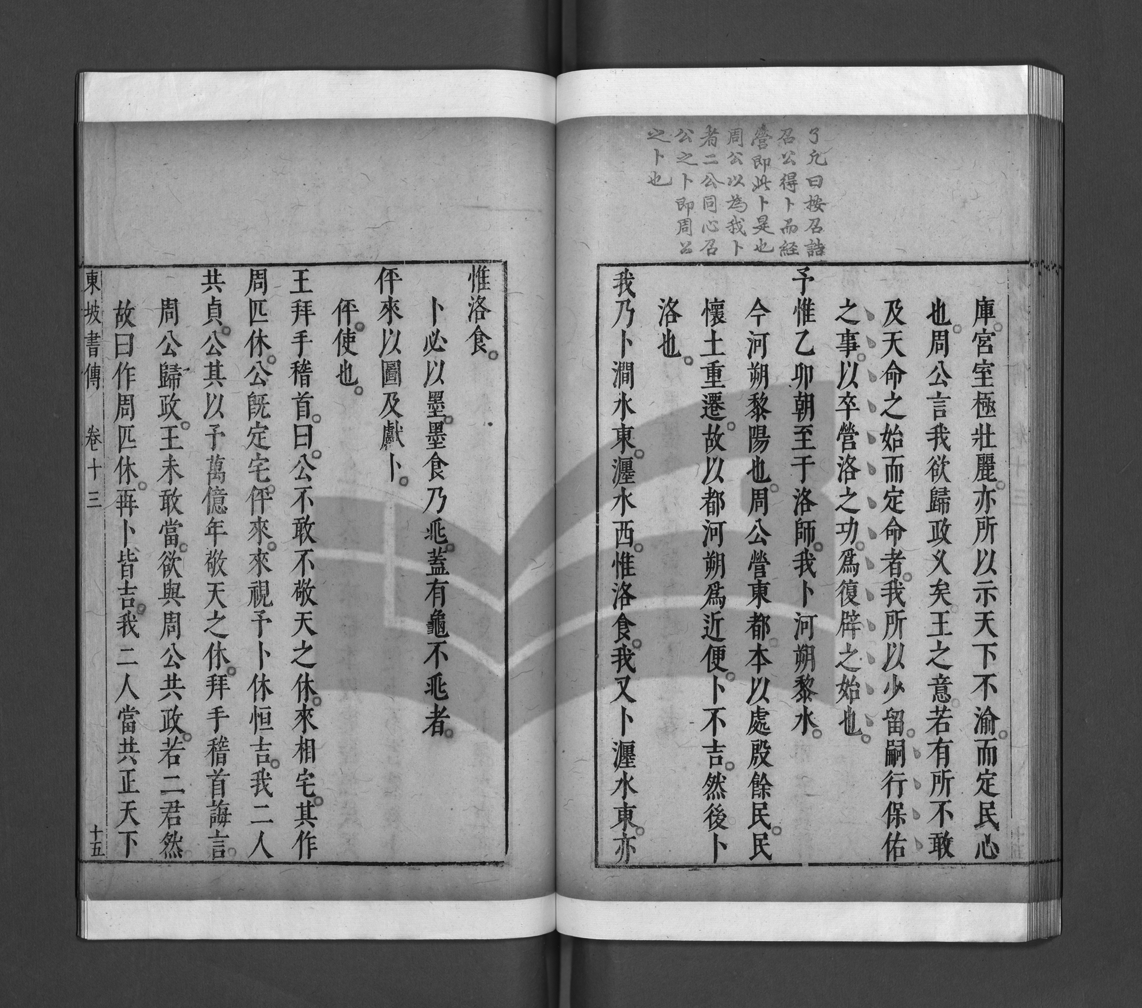 了凡曰按召誥
召公得卜而經
營即此卜是也
周公以為我卜
者二公同心召
公之卜即周公
之卜也
庫。宮室極壯麗。亦所以示天下不渝。而定民心
也。周公言我欲歸政乂矣。王之意。若有所不敢
及天命之始而定命者。我所以少留。嗣行保佑
之事。以卒營洛之功。爲復辟之始也。
予惟乙卯朝至于洛師。我卜河朔黎水。
今河朔黎陽也。周公營東都。本以處殷餘民。民
懷土重遷。故以都河朔爲近便。卜不吉。然後卜
洛也。
我乃卜澗水東。瀍水西。惟洛食。我又卜瀍水東。亦
惟洛食。
卜必以墨。墨食乃兆。蓋有龜不兆者。
伻來以圖及獻卜。
伻。使也。
王拜手稽首。曰。公不敢不敬天之休。來相宅。其作
周匹休。公旣定宅。伻來。來視予卜休恒吉。我二人
共貞。公其以予萬億年敬天之休。拜手稽首誨言。
周公歸政。王未敢當。欲與周公共政。若二君然
故曰作周匹休。再卜皆吉。我二人當共正天下
東坡書傳 卷十三 十五